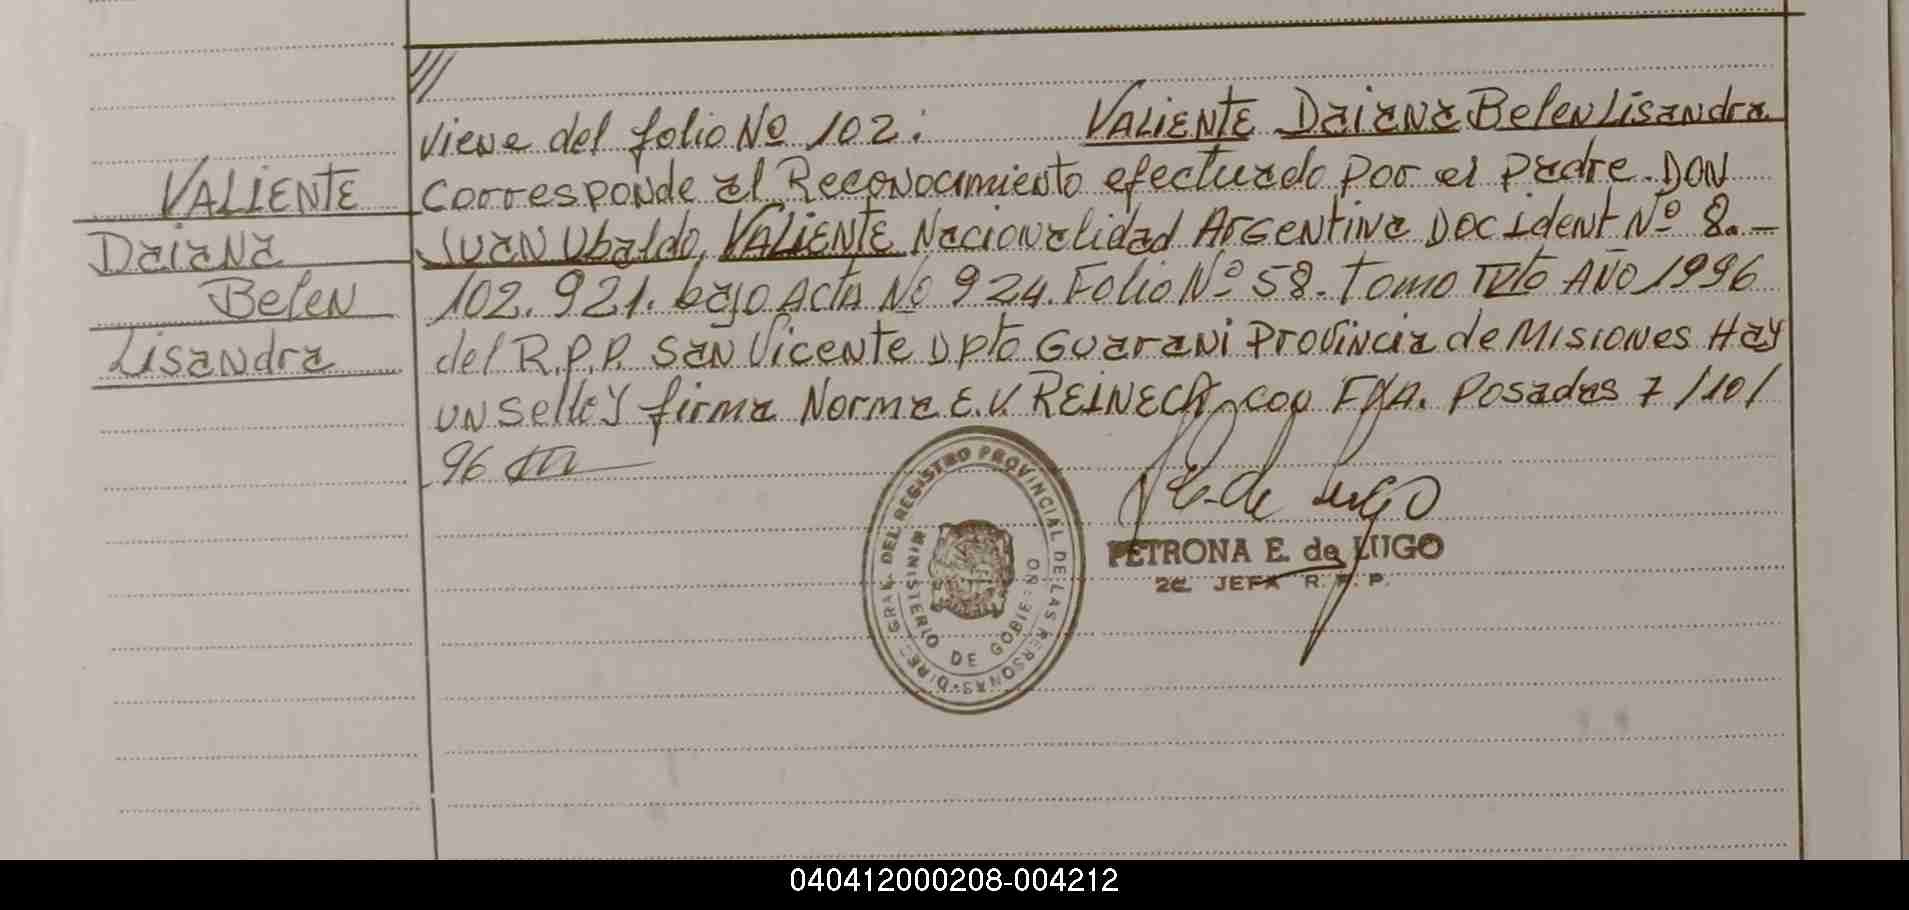 ///
Viene del folio No 102: VALIENTE Daiana Belen Lisandra
VALIENTE
Corresponde al Reconocimiento efectuado por el padre. DON
Daiana
Juan Ubaldo, VALIENTE Nacionalidad Argentina Doc Ident Nº 8.-
Belen
102.921. bajo Acta No 924. Folio Nº 58. Tomo AÑO 1996
Lisandra
del R.P.P. San Vicente Dpto Guarani Provincia de Misiones Hay
un sello y firma Norma E.V. REINECA, Posadas 7/10/
96
DIREC. GRAL. DEL REGISTRO PROVINCIAL DE LAS PERSONAS
MINISTERIO DE GOBIERNO
de Lugo
PETRONA E. de LUGO
2a. JEFA R. P. P.
040412000208-004212